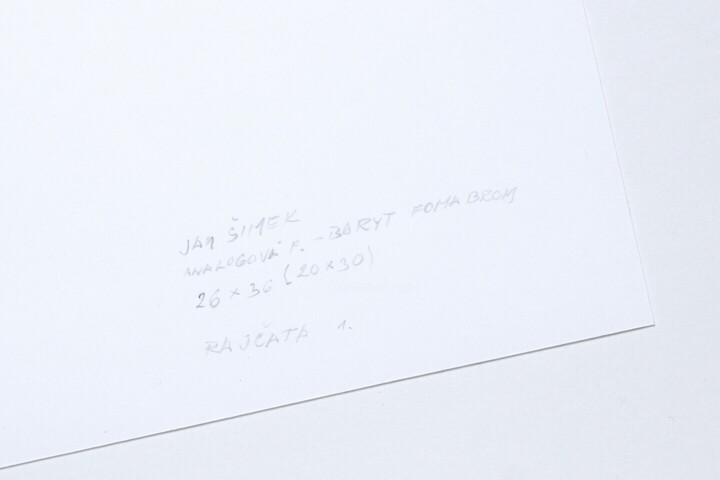 JAN ŠIMEK
ANALOGOVÁ F. - BARYT FOMABROM
26 x 36 (20 x 30)
RAJČATA 1.